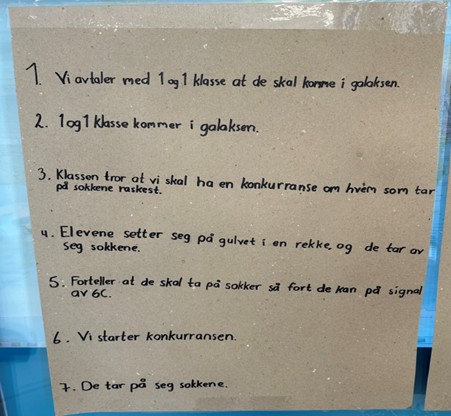 1. Vi avtaler med 1 og 1 klasse at de skal komme i galaksen.
2. 1 og 1 klasse kommer i galaksen.
3. Klassen tror at vi skal ha en konkurranse om hvem som tar
på sokkene raskest.
4. Elevene setter seg på gulvet i en rekke, og de tar av
seg sokkene.
5. Forteller at de skal ta på sokker så fort de kan på signal
av 6C.
6. Vi starter konkurransen.
7. De tar på seg sokkene.